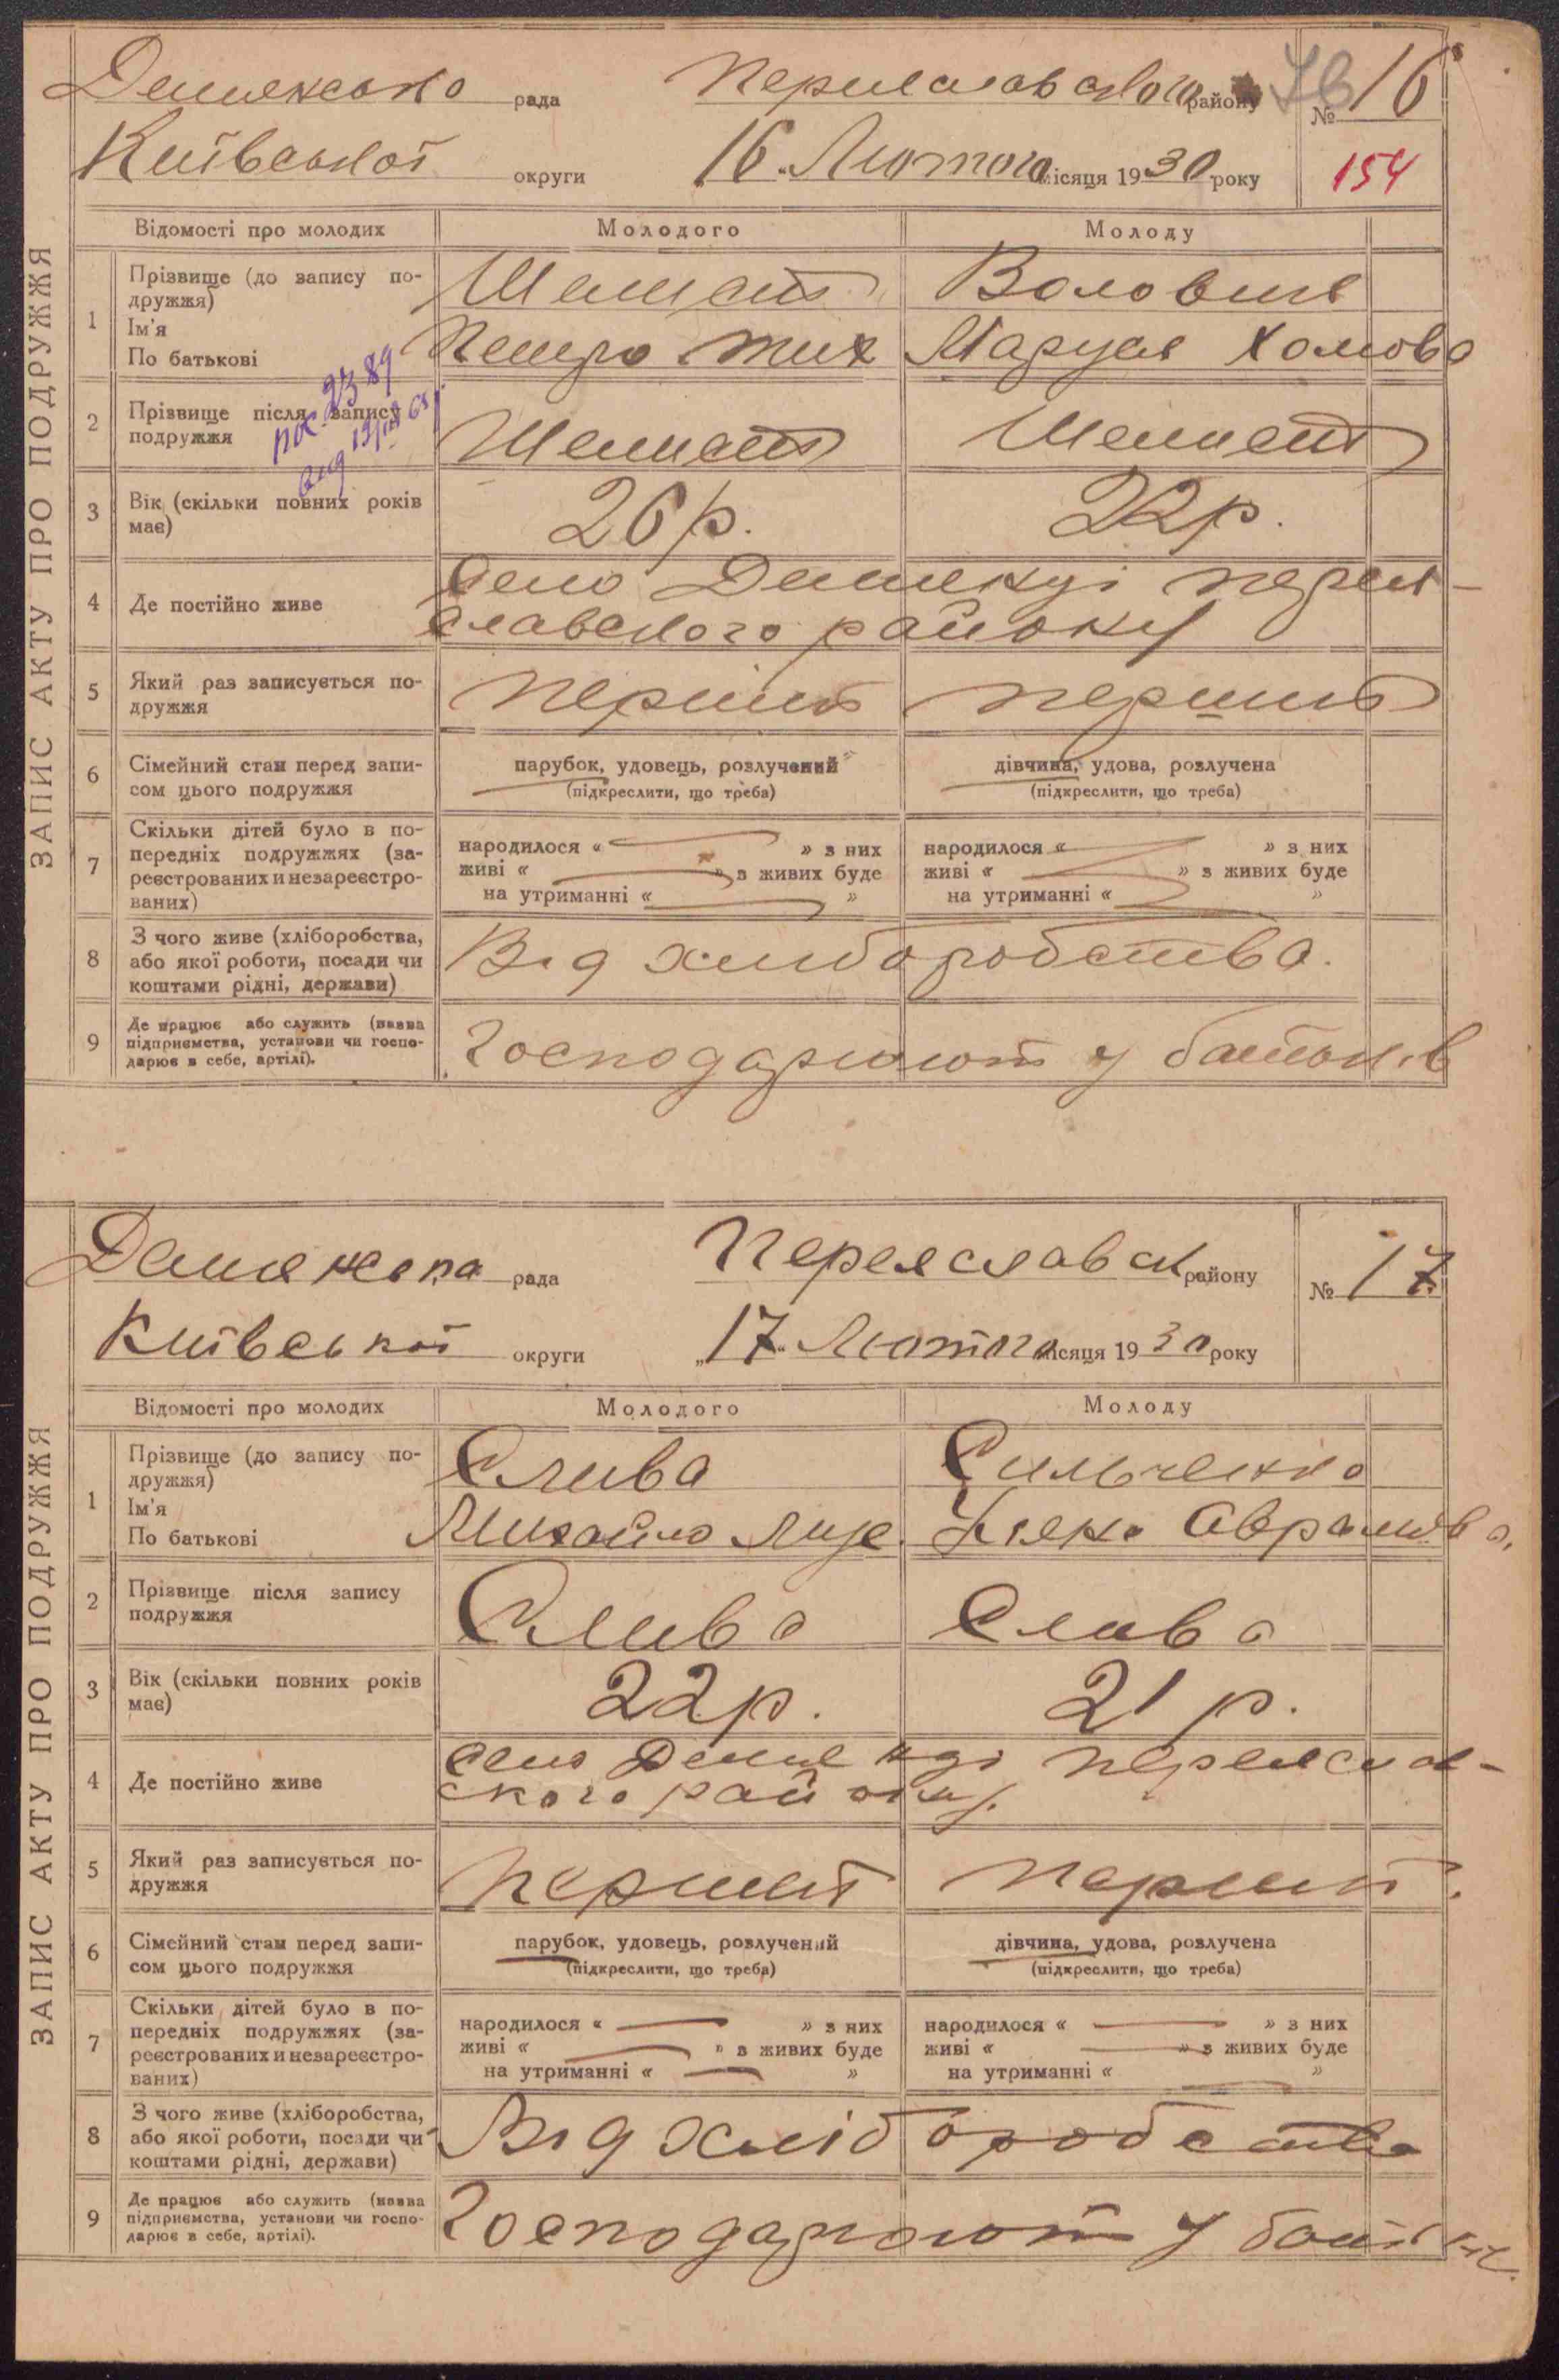 ЗАПИС АКТУ ПРО ПОДРУЖЖЯ
рада Переяславского району № 16
Київської округи 16 Лютого місяця 1930 року 154
Відомості про молодих Молодого Молоду
1 Прізвище (до запису по-
дружжя)
Ім'я
По батькові
Шемшет
Петро Тих Маруся Хомова
2 Прізвище після запису
подружжя
Шемшет Шемшет
3 Вік (скільки повних років
має)
26 р. 22 р.
4 Де постійно живе
Село Демянці Перея-
славского району
5 Який раз записується по-
дружжя
перший перший
6 Сімейний стан перед запи-
сом цього подружжя
парубок, удовець, розлучений
(підкреслити, що треба)
дівчина, удова, розлучена
(підкреслити, що треба)
7 Скільки дітей було в по-
передніх подружжях (за-
реєстрованих и незареєстро-
ваних)
народилося « » з них
живі « » з живих буде
на утриманні « »
народилося « » з них
живі « » з живих буде
на утриманні « »
8 З чого живе (хліборобства,
або якої роботи, посади чи
коштами рідні, держави)
Від хліборобства.
9 Де працює або служить (назва
підприємства, установи чи госпо-
дарює в себе, артілі).
Господарюют у батьків
ЗАПИС АКТУ ПРО ПОДРУЖЖЯ
рада Переяславск району № 17
Київської округи „17“ Лютого місяця 1930 року
Відомості про молодих Молодого Молоду
1 Прізвище (до запису по-
дружжя)
Ім'я
По батькові
Слива Сильченко
Михайло Уляна Аврамова.
2 Прізвище після запису
подружжя
Слива Слива
3 Вік (скільки повних років
має)
22 р. 21 р.
4 Де постійно живе
село Демянці Переяслав-
ского району.
5 Який раз записується по-
дружжя
перший перший.
6 Сімейний стан перед запи-
сом цього подружжя
парубок, удовець, розлучений
(підкреслити, що треба)
дівчина, удова, розлучена
(підкреслити, що треба)
7 Скільки дітей було в по-
передніх подружжях (за-
реєстрованих и незареєстро-
ваних)
народилося « » з них
живі « » з живих буде
на утриманні « »
народилося « » з них
живі « » з живих буде
на утриманні « »
8 З чого живе (хліборобства,
або якої роботи, посади чи
коштами рідні, держави)
Від хліборобства
9 Де працює або служить (назва
підприємства, установи чи госпо-
дарює в себе, артілі).
Господарюют у